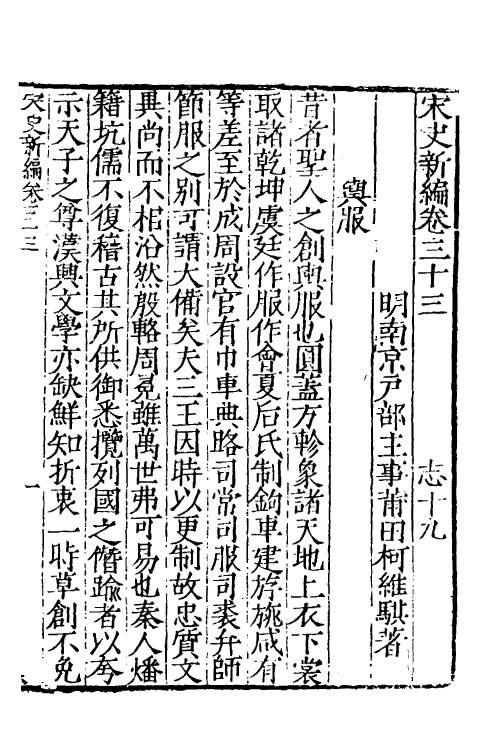 宋史新編卷三十三　　　　　志十九
明南京戸部主事莆田柯維騏著
輿服
昔者聖人之創輿服也圓蓋方軫象諸天地上衣下裳
取諸乾坤虞廷作服作會夏后氏制鉤車建旂旐咸有
等差至於成周設官有巾車典路司常司服司裘弁師
節服之別可謂大備矣夫三王因時以更制故忠質文
異尚而不相沿然殷輅周冕雖萬世弗可易也秦人燔
籍坑儒不復稽古其所供御悉攬列國之僭踰者以夸
示天子之尊漢興文學亦缺鮮知折衷一時草創不免
宋史新編卷三三　　一